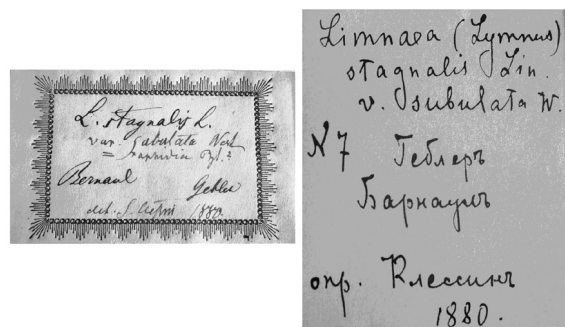 L. stagnalis L.
var. subulata West
Bernaul Gebler
det. S. Clessin 1880.
Limnaea (Lymnus)
stagnalis Lin.
v. subulata W.
N 7 Геблеръ
Барнаулъ
опр. Клессинъ
1880.